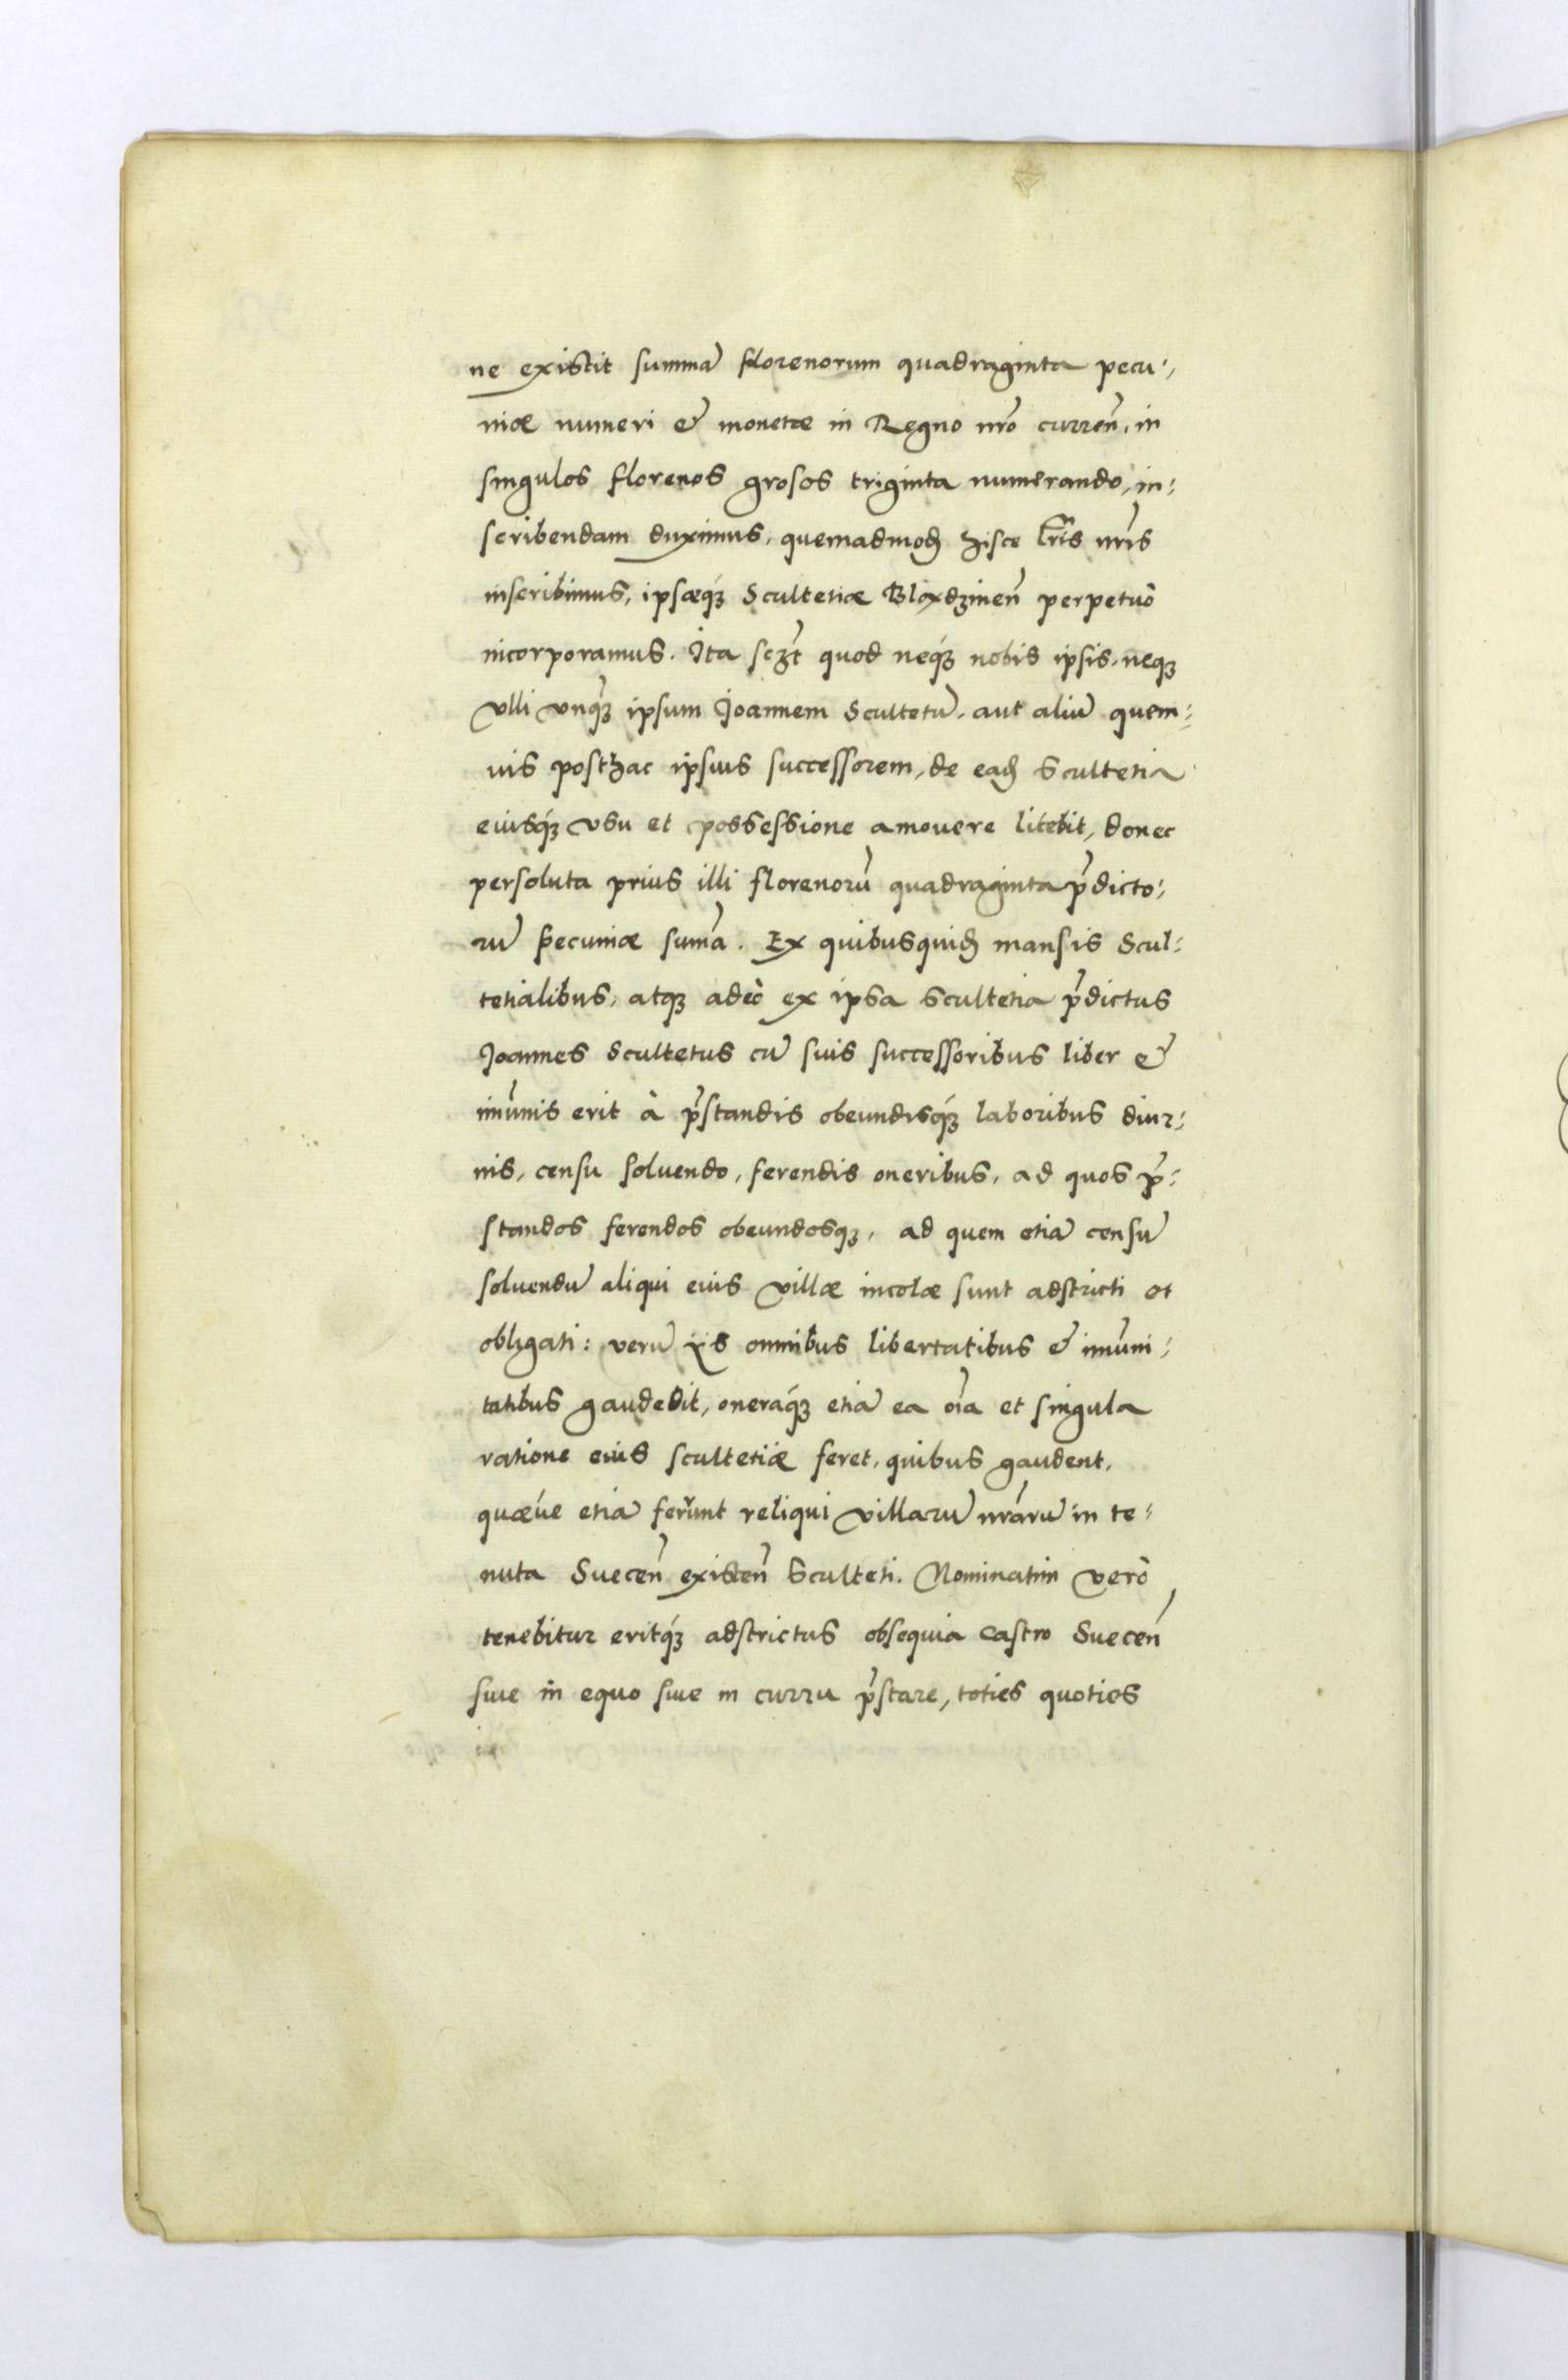 ne existit summā florenorum quadraginta pecu⸗
niæ numeri & monetæ in Regno nr̄o currēn, in
singulos florenos grosos triginta numerando, in⸗
scribendam duximus, quemadmodꝫ hisce Lr̄is nr̄is
inscribimus, ipsæqꝫ Scultetiæ Bloxdzinēn perpetuò
incorporamus. Ita sczt̄ quod neqꝫ nobis ipsis, neqꝫ
vlli vnq̄ꝫ ipsum Joannem Scultetū, aut aliū quem⸗
uis posthac ipsius successorem, de eadꝫ Scultetia
eiusqꝫ vsu et possessione amouere licebit, donec
persoluta prius illi florenorū quadraginta p̄dicto⸗
rū pecuniæ sum̄a. Ex quibusquidꝫ mansis Scul⸗
tetialibus, atqꝫ adeò ex ipsa scultetia p̄dictus
Joannes Scultetus cū suis successoribus liber &
im̄unis erit à p̄standis obeundisqꝫ laboribus diur⸗
nis, censu soluendo, ferendis oneribus, ad quos p̄⸗
standos ferendos obeundosqꝫ, ad quem etiā censū
soluendū aliqui eius villæ incolæ sunt adstricti et
obligati: verū ijs omnibus libertatibus & im̄uni⸗
tatibus gaudebit, oneraqꝫ etiā ea oīa et singula
ratione eius scultetiæ feret, quibus gaudent,
quæue etiā ferunt reliqui villarū nr̄arū in te⸗
nuta Suecēn existēn Sculteti. Nominatim verò
tenebitur eritqꝫ adstrictus obsequia castro Suecēn
siue in equo siue in curru p̄stare, toties quoties